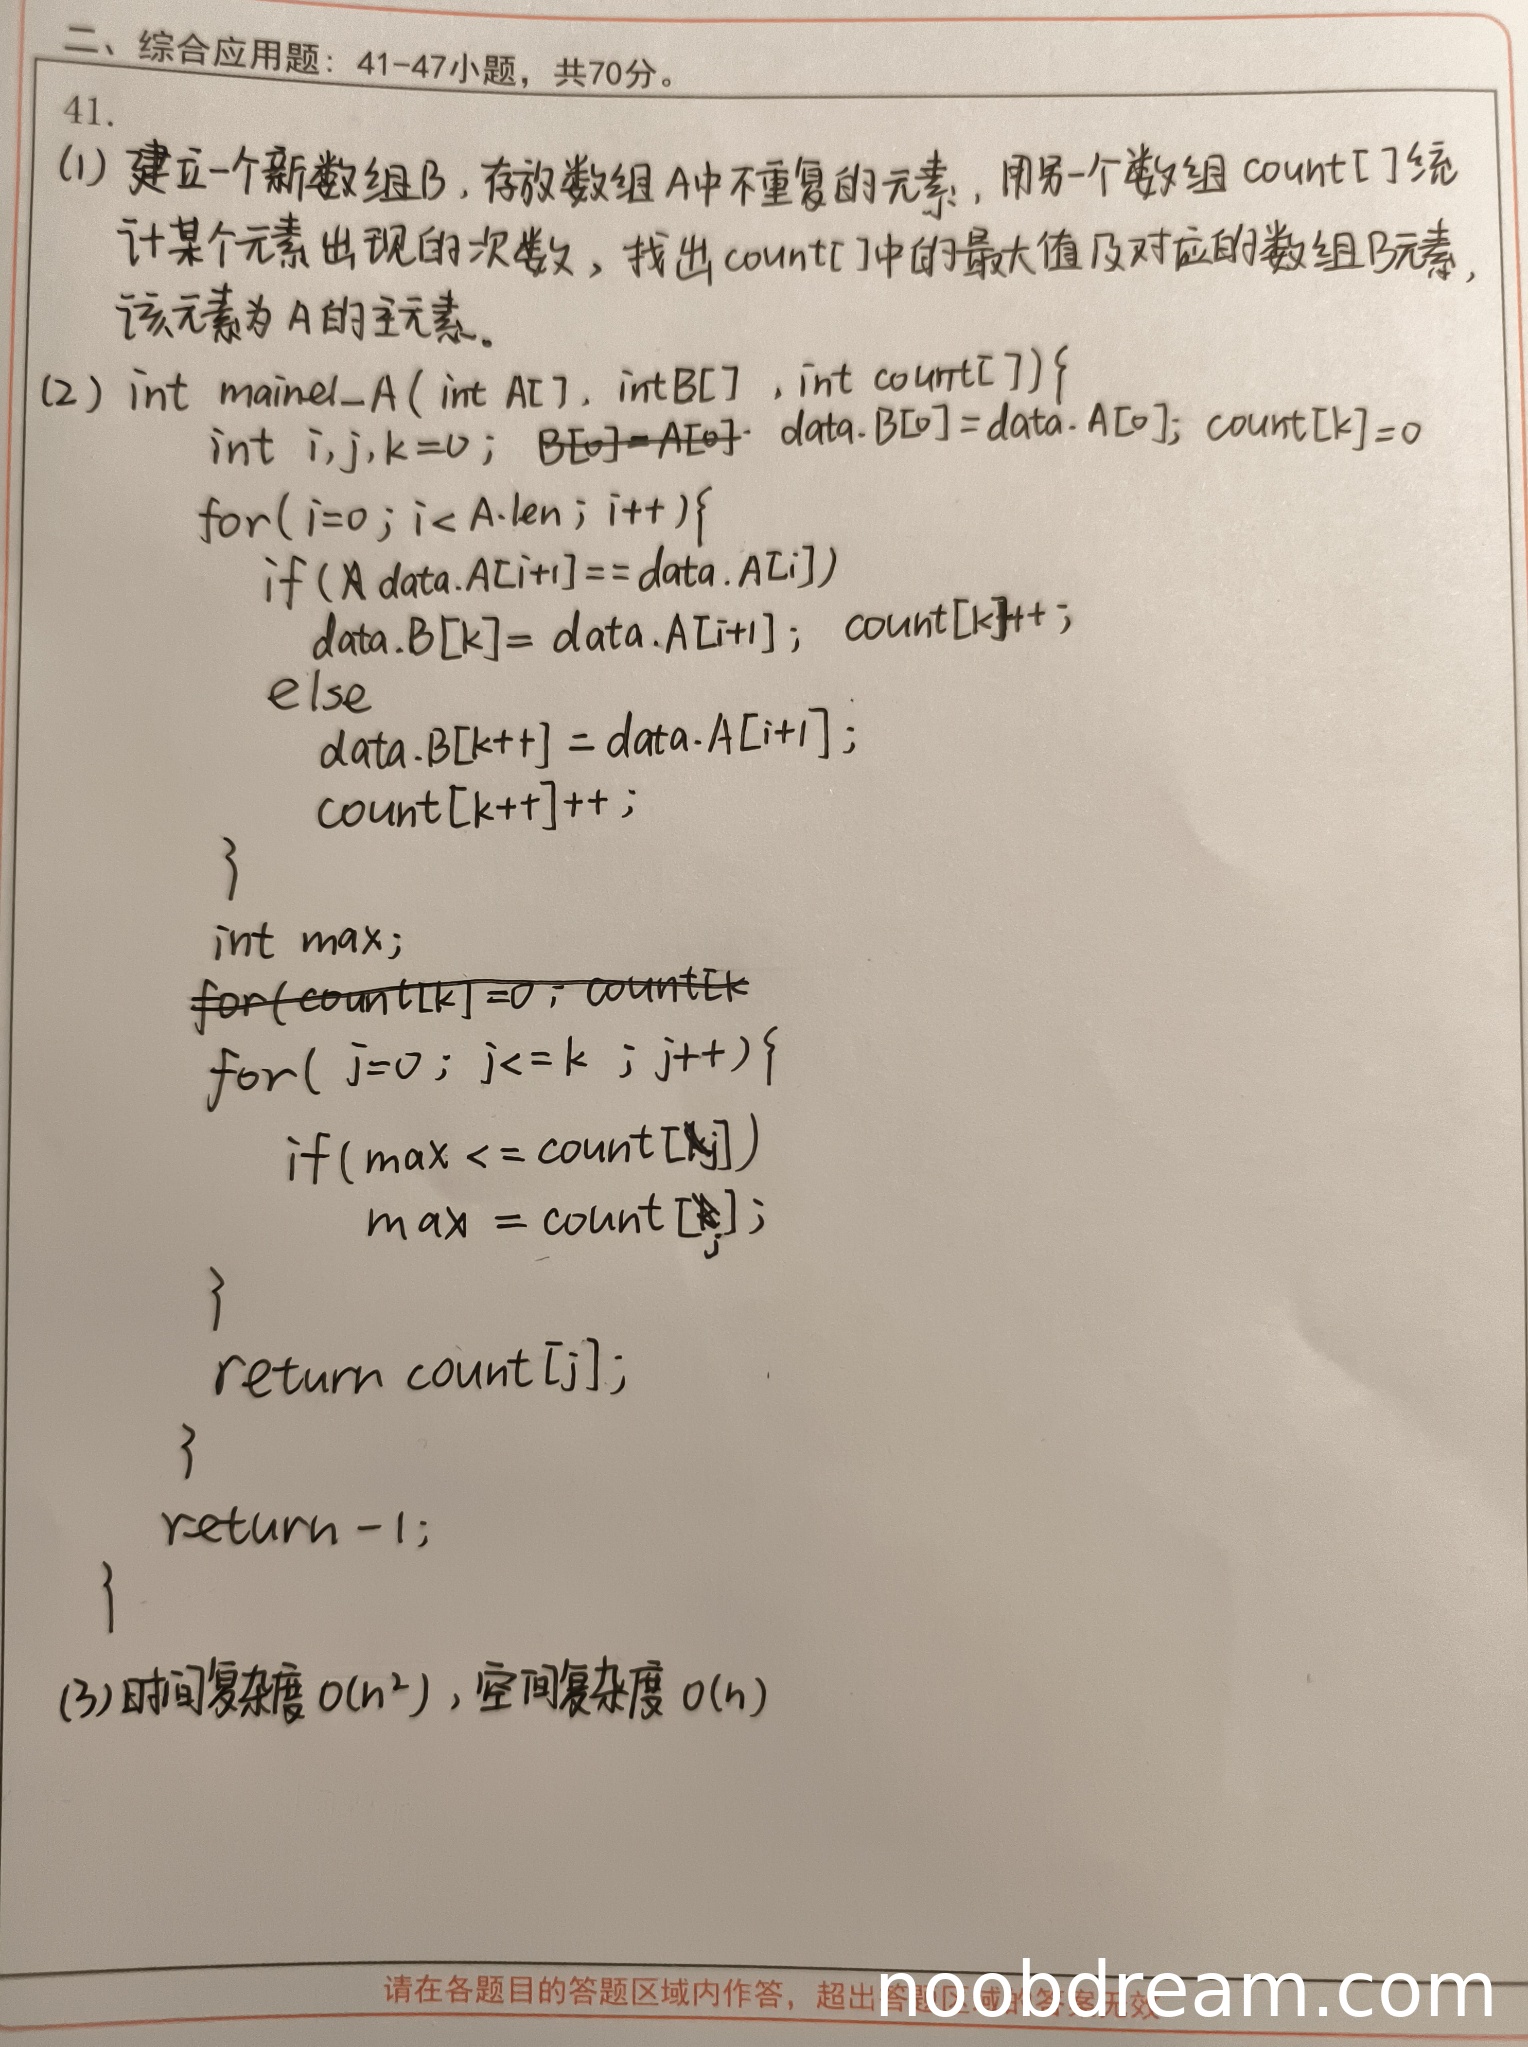 二、综合应用题：41-47小题，共70分。
41.
(1) 建立一个新数组B，存放数组A中不重复的元素，用另一个数组count[]统
计某个元素出现的次数，找出count[]中的最大值及对应的数组B元素，
该元素为A的主元素。
(2) int mainel_A(int A[], int B[], int count[]){
int i,j,k=0; B[0]=A[0] data.B[0]=data.A[0]; count[k]=0
for(i=0; i<A.len; i++){
if(data.A[i+1]==data.A[i])
data.B[k]=data.A[i+1]; count[k]++;
else
data.B[k++]=data.A[i+1];
count[k++]++;
}
int max;
for(count[k]=0; count[k
for( j=0; j<=k ; j++){
if(max<=count[j])
max = count[j];
}
return count[j];
}
return -1;
}
(3)时间复杂度O(n²)，空间复杂度O(n)
请在各题目的答题区域内作答，超出答题区域的答案无效
noobdream.com